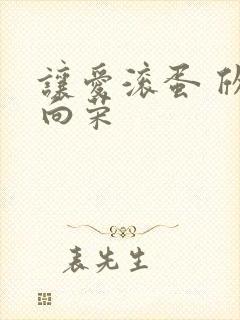 讓愛滾蛋 欣
向荣
表先生